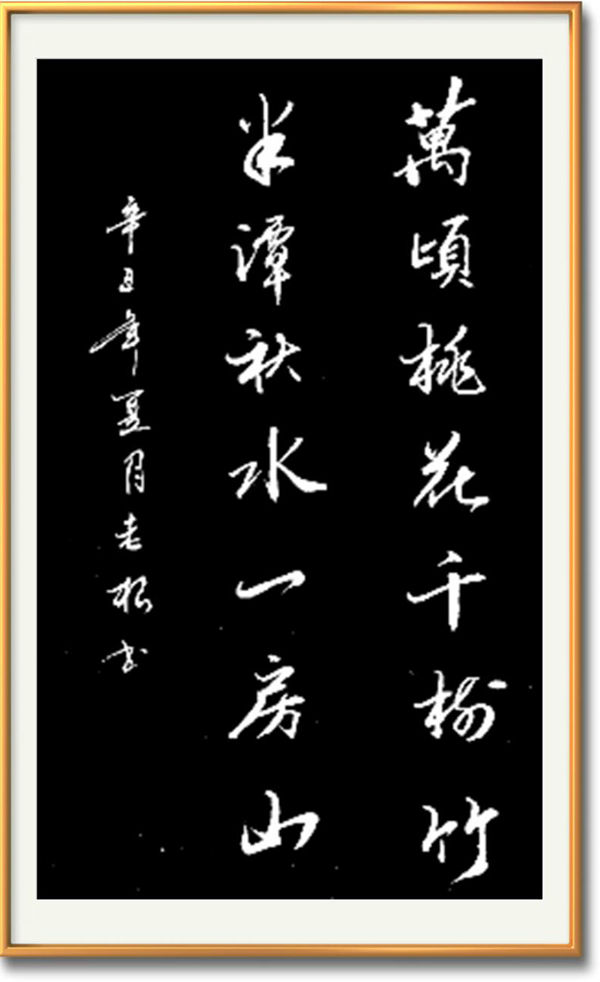 萬頃桃花千樹竹
半潭秋水一房山
辛丑年夏月老松书